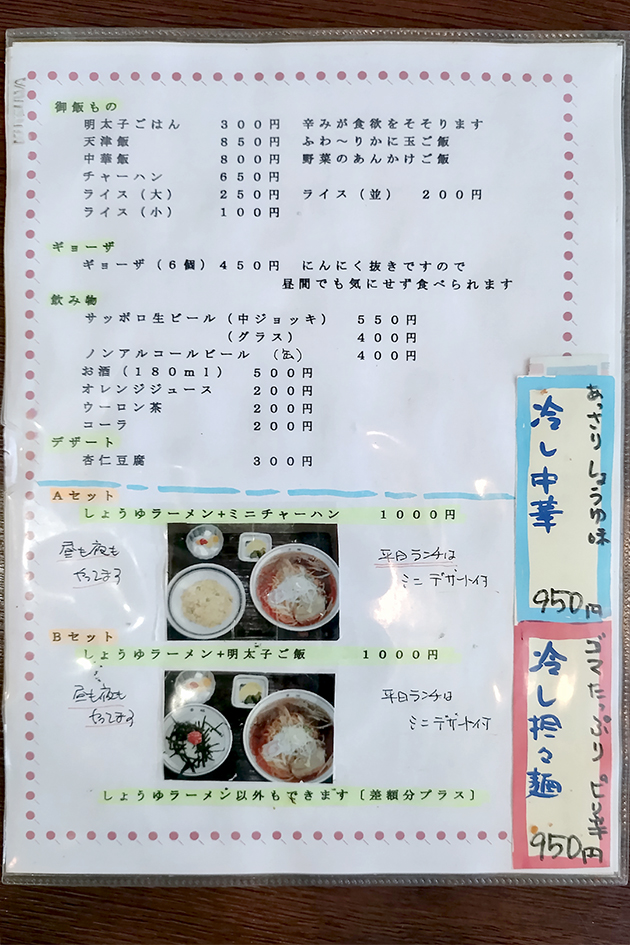 御飯もの
明太子ごはん 300円 辛みが食欲をそそります
天津飯 850円 ふわ～りかに玉ご飯
中華飯 800円 野菜のあんかけご飯
チャーハン 650円
ライス(大) 250円 ライス(並) 200円
ライス(小) 100円
ギョーザ
ギョーザ(6個) 450円 にんにく抜きですので
昼間でも気にせず食べられます
飲み物
サッポロ生ビール(中ジョッキ) 550円
(グラス) 400円
ノンアルコールビール (缶) 400円
お酒(180ml) 500円
オレンジジュース 200円
ウーロン茶 200円
コーラ 200円
デザート
杏仁豆腐 300円
Aセット
しょうゆラーメン+ミニチャーハン 1000円
昼も夜も
やってます
平日ランチは
ミニデザート付
Bセット
しょうゆラーメン+明太子ご飯 1000円
昼も夜も
やってます
平日ランチは
ミニデザート付
しょうゆラーメン以外もできます〔差額分プラス〕
あっさりしょうゆ味
冷し中華
950円
ゴマたっぷりピリ辛
冷し担々麺
950円